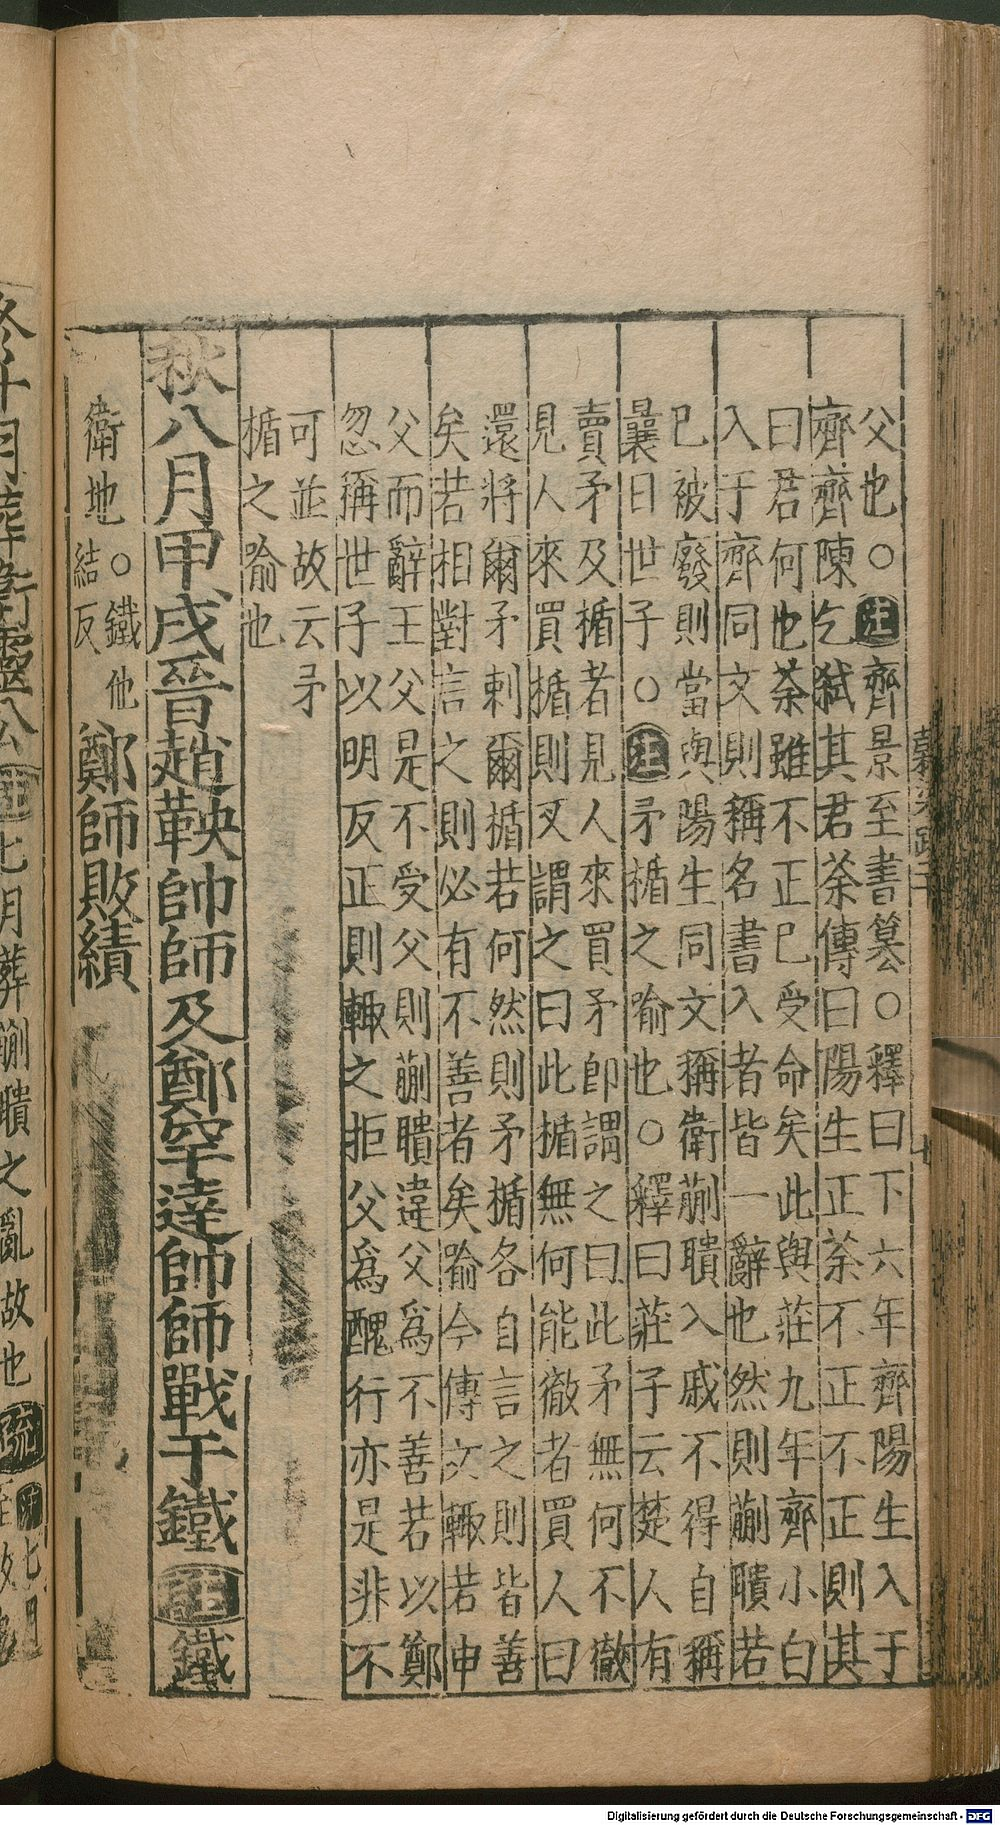 父也○注齊景至書篡○釋曰下六年齊陽生入于
齊齊陳乞弒其君荼傳曰陽生正荼不正不正則其
曰君何也荼雖不正已受命矣此與莊九年齊小白
入于齊同文則稱名書入者皆一辭也然則蒯聵若
已被廢則當與陽生同文稱衛蒯聵入戚不得自稱
曩日世子○注矛楯之喻也○釋曰莊子云楚人有
賣矛及楯者見人來買矛卽謂之曰此矛無何不徹
見人來買楯則又謂之曰此楯無何能徹者買人曰
還將爾矛刺爾楯若何然則矛楯各自言之則皆善
矣若相對言之則必有不善者矣喻今傳文輒若申
父而辭王父是不受父則蒯聵違父爲不善若以鄭
忽稱世子以明反正則輒之拒父爲醜行亦是非不
可並故云矛
楯之喻也
秋八月甲戌晉趙鞅帥師及鄭罕達帥師戰于鐵注鐵
衛地○鐵他
結反
鄭師敗績
冬十月葬衛靈公注七月葬蒯聵之亂故也疏注七月
至故也
Digitalisierung gefördert durch die Deutsche Forschungsgemeinschaft - DFG